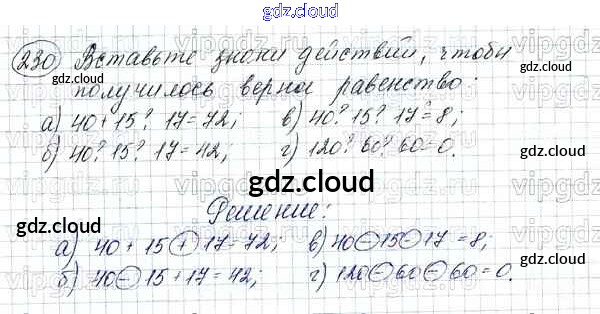 gdz.cloud
230 Вставьте знаки действий, чтобы
gdz.cloud
получилось верное равенство:
gdz.cloud
а) 40+15? 17=72; в) 40? 15? 17=8;
б) 40? 15? 17=42; г) 120? 60? 60=0.
gdz.cloud
Решение:
gdz.cloud
а) 40+15+17=72; в) 40-15-17=8;
б) 40-15+17=42; г) 120-60-60=0.
gdz.cloud
gdz.cloud